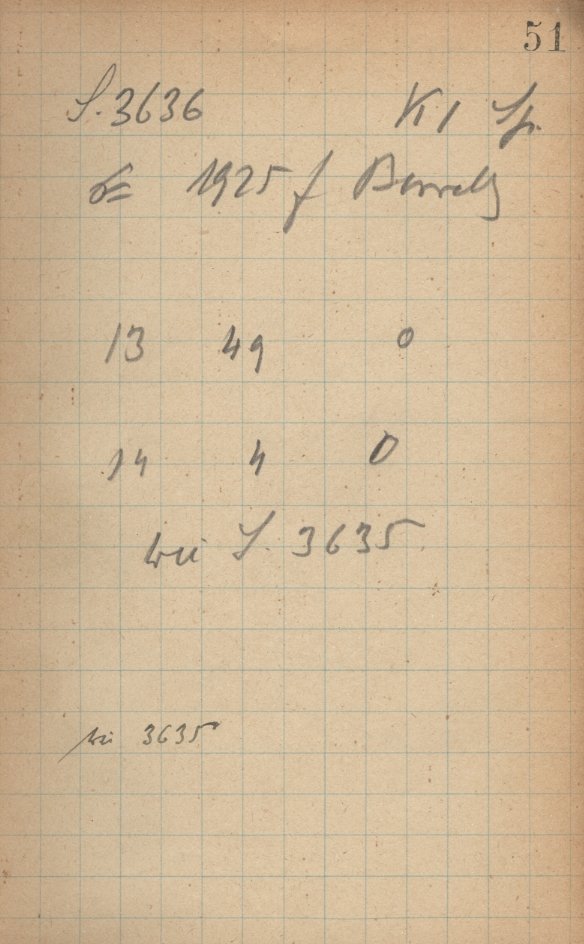 51
S. 3636 K1 Sp.
= 1925 f Borrelly
13 49 0
14 4 0
wie S. 3635
wie 3635